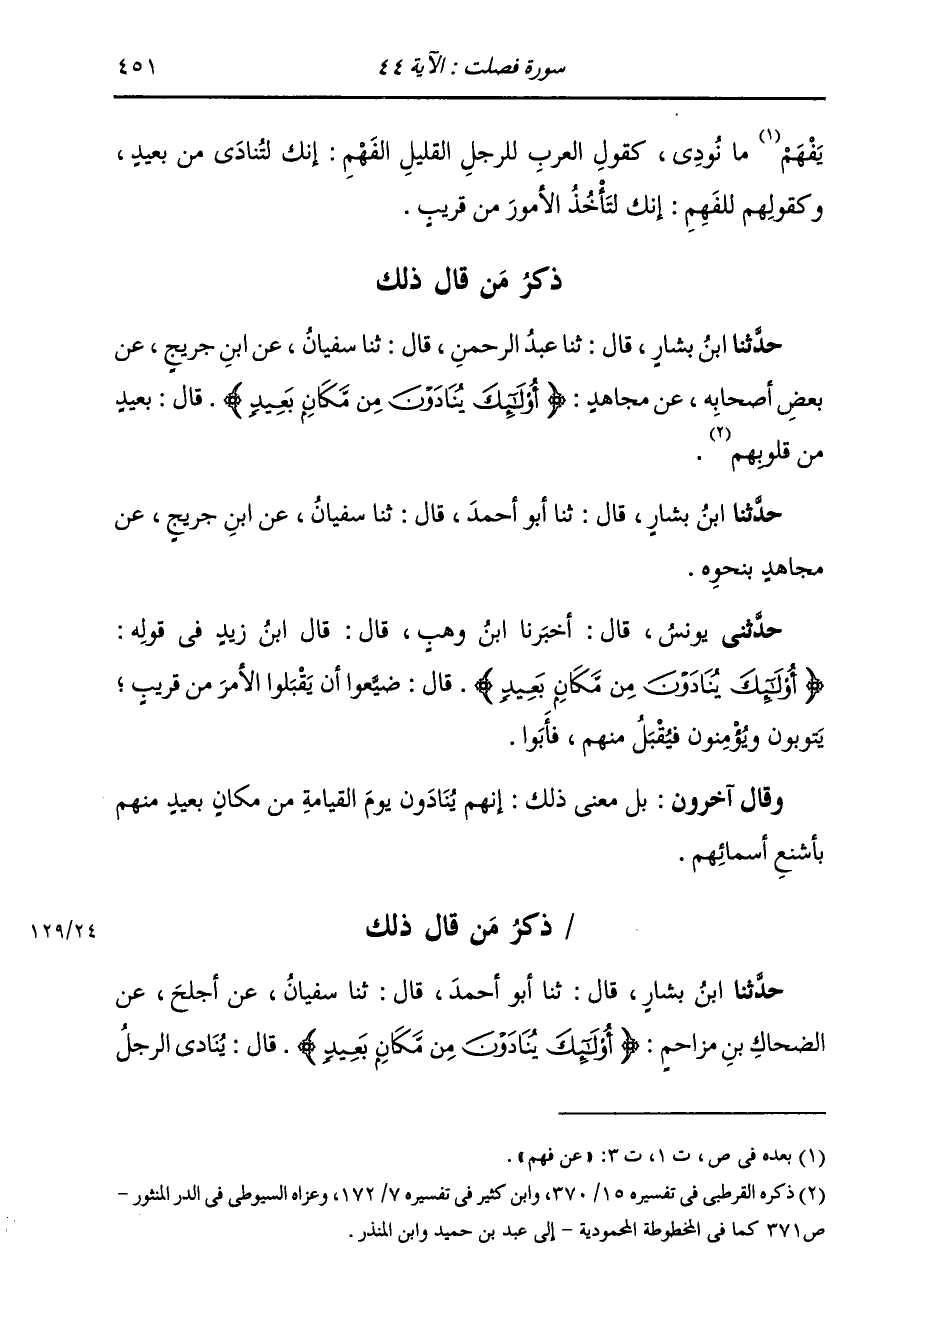 سورة فصلت : الآية ٤٤
٤٥١
يَفْهَمْ(١) ما نُودِى ، كقولِ العربِ للرجلِ القليلِ الفَهْمِ : إنك لتُنادَى من بعيدٍ ،
وكقولِهم للفَهِمِ : إنك لتَأْخُذُ الأمورَ من قريبٍ .
ذكرُ مَن قال ذلك
حدَّثنا ابنُ بشارٍ ، قال : ثنا عبدُ الرحمنِ ، قال : ثنا سفيانُ ، عن ابنِ جريجٍ ، عن
بعضِ أصحابِه ، عن مجاهدٍ : ﴿ أُوْلَٰٓئِكَ يُنَادَوْنَ مِن مَّكَانٍ بَعِيدٍ ﴾ . قال : بعيدٍ
من قلوبِهم(٢) .
حدَّثنا ابنُ بشارٍ ، قال : ثنا أبو أحمدَ ، قال : ثنا سفيانُ ، عن ابنِ جريجٍ ، عن
مجاهدٍ بنحوِه .
حدَّثنى يونسُ ، قال : أخبَرنا ابنُ وهبٍ ، قال : قال ابنُ زيدٍ فى قولِه :
﴿ أُوْلَٰٓئِكَ يُنَادَوْنَ مِن مَّكَانٍ بَعِيدٍ ﴾ . قال : ضيَّعوا أن يَقْبَلوا الأمرَ من قريبٍ ؛
يَتوبون ويُؤْمِنون فيُقْبَلُ منهم ، فأَبَوا .
وقال آخرون : بل معنى ذلك : إنهم يُنَادَون يومَ القيامةِ من مكانٍ بعيدٍ منهم
بأشنعِ أسمائِهم .
/ ذكرُ مَن قال ذلك
١٢٩/٢٤
حدَّثنا ابنُ بشارٍ ، قال : ثنا أبو أحمدَ ، قال : ثنا سفيانُ ، عن أجلحَ ، عن
الضحاكِ بنِ مزاحمٍ : ﴿ أُوْلَٰٓئِكَ يُنَادَوْنَ مِن مَّكَانٍ بَعِيدٍ ﴾ . قال : يُنَادى الرجلُ
(١) بعده فى ص، ت ١، ت ٣: «عن فهم» .
(٢) ذكره القرطبى فى تفسيره ١٥/ ٣٧٠، وابن كثير فى تفسيره ٧/ ١٧٢، وعزاه السيوطى فى الدر المنثور -
ص٣٧١ كما فى المخطوطة المحمودية - إلى عبد بن حميد وابن المنذر .